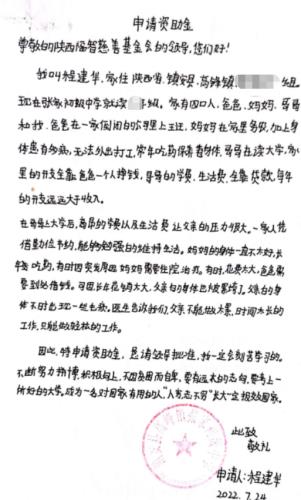 申请资助金
尊敬的陕西福智慈善基金会的领导,您们好!
我叫程建华,家住陕西省,镇安县,高峰镇,
现在张家初级中学就读 年级。家有四口人,爸爸,妈妈,哥哥
和我。爸爸在一家 公司里上班,妈妈在家里务农,加上身
体患有疾病,无法外出打工,常年吃药保养身体,哥哥在读大学,家
里的开支全靠爸爸一个人挣钱,哥哥的学费、生活费,全靠贷款,每年
的开支远远大于收入。
在哥哥上大学后,高昂的学费以及生活费让父亲的压力很大。一家人凭
借量位节约,能够勉强的维持生活。妈妈的身体一直不太好,长
年吃药,有时因突发原因妈妈需要住院治疗。有时,花费太大,爸爸需
要到处借钱。可因长年花的太大,父亲的身体也被累垮了。父亲的身
体不时出现一些毛病。医生告诉我们,父亲不能做太累,时间太长的
工作,只能做轻松的工作。
因此,特申请资助金,恳请领导批准,我一定会刻苦学习的。
不断努力拼搏,积极向上,不因贫困而自卑,要有远大的志向,要考上一
所好的大学,成为一名对国家有用的人,"人穷志不穷"长大一定报效国家。
此致
敬礼
申请人:程建华
2022.7.24